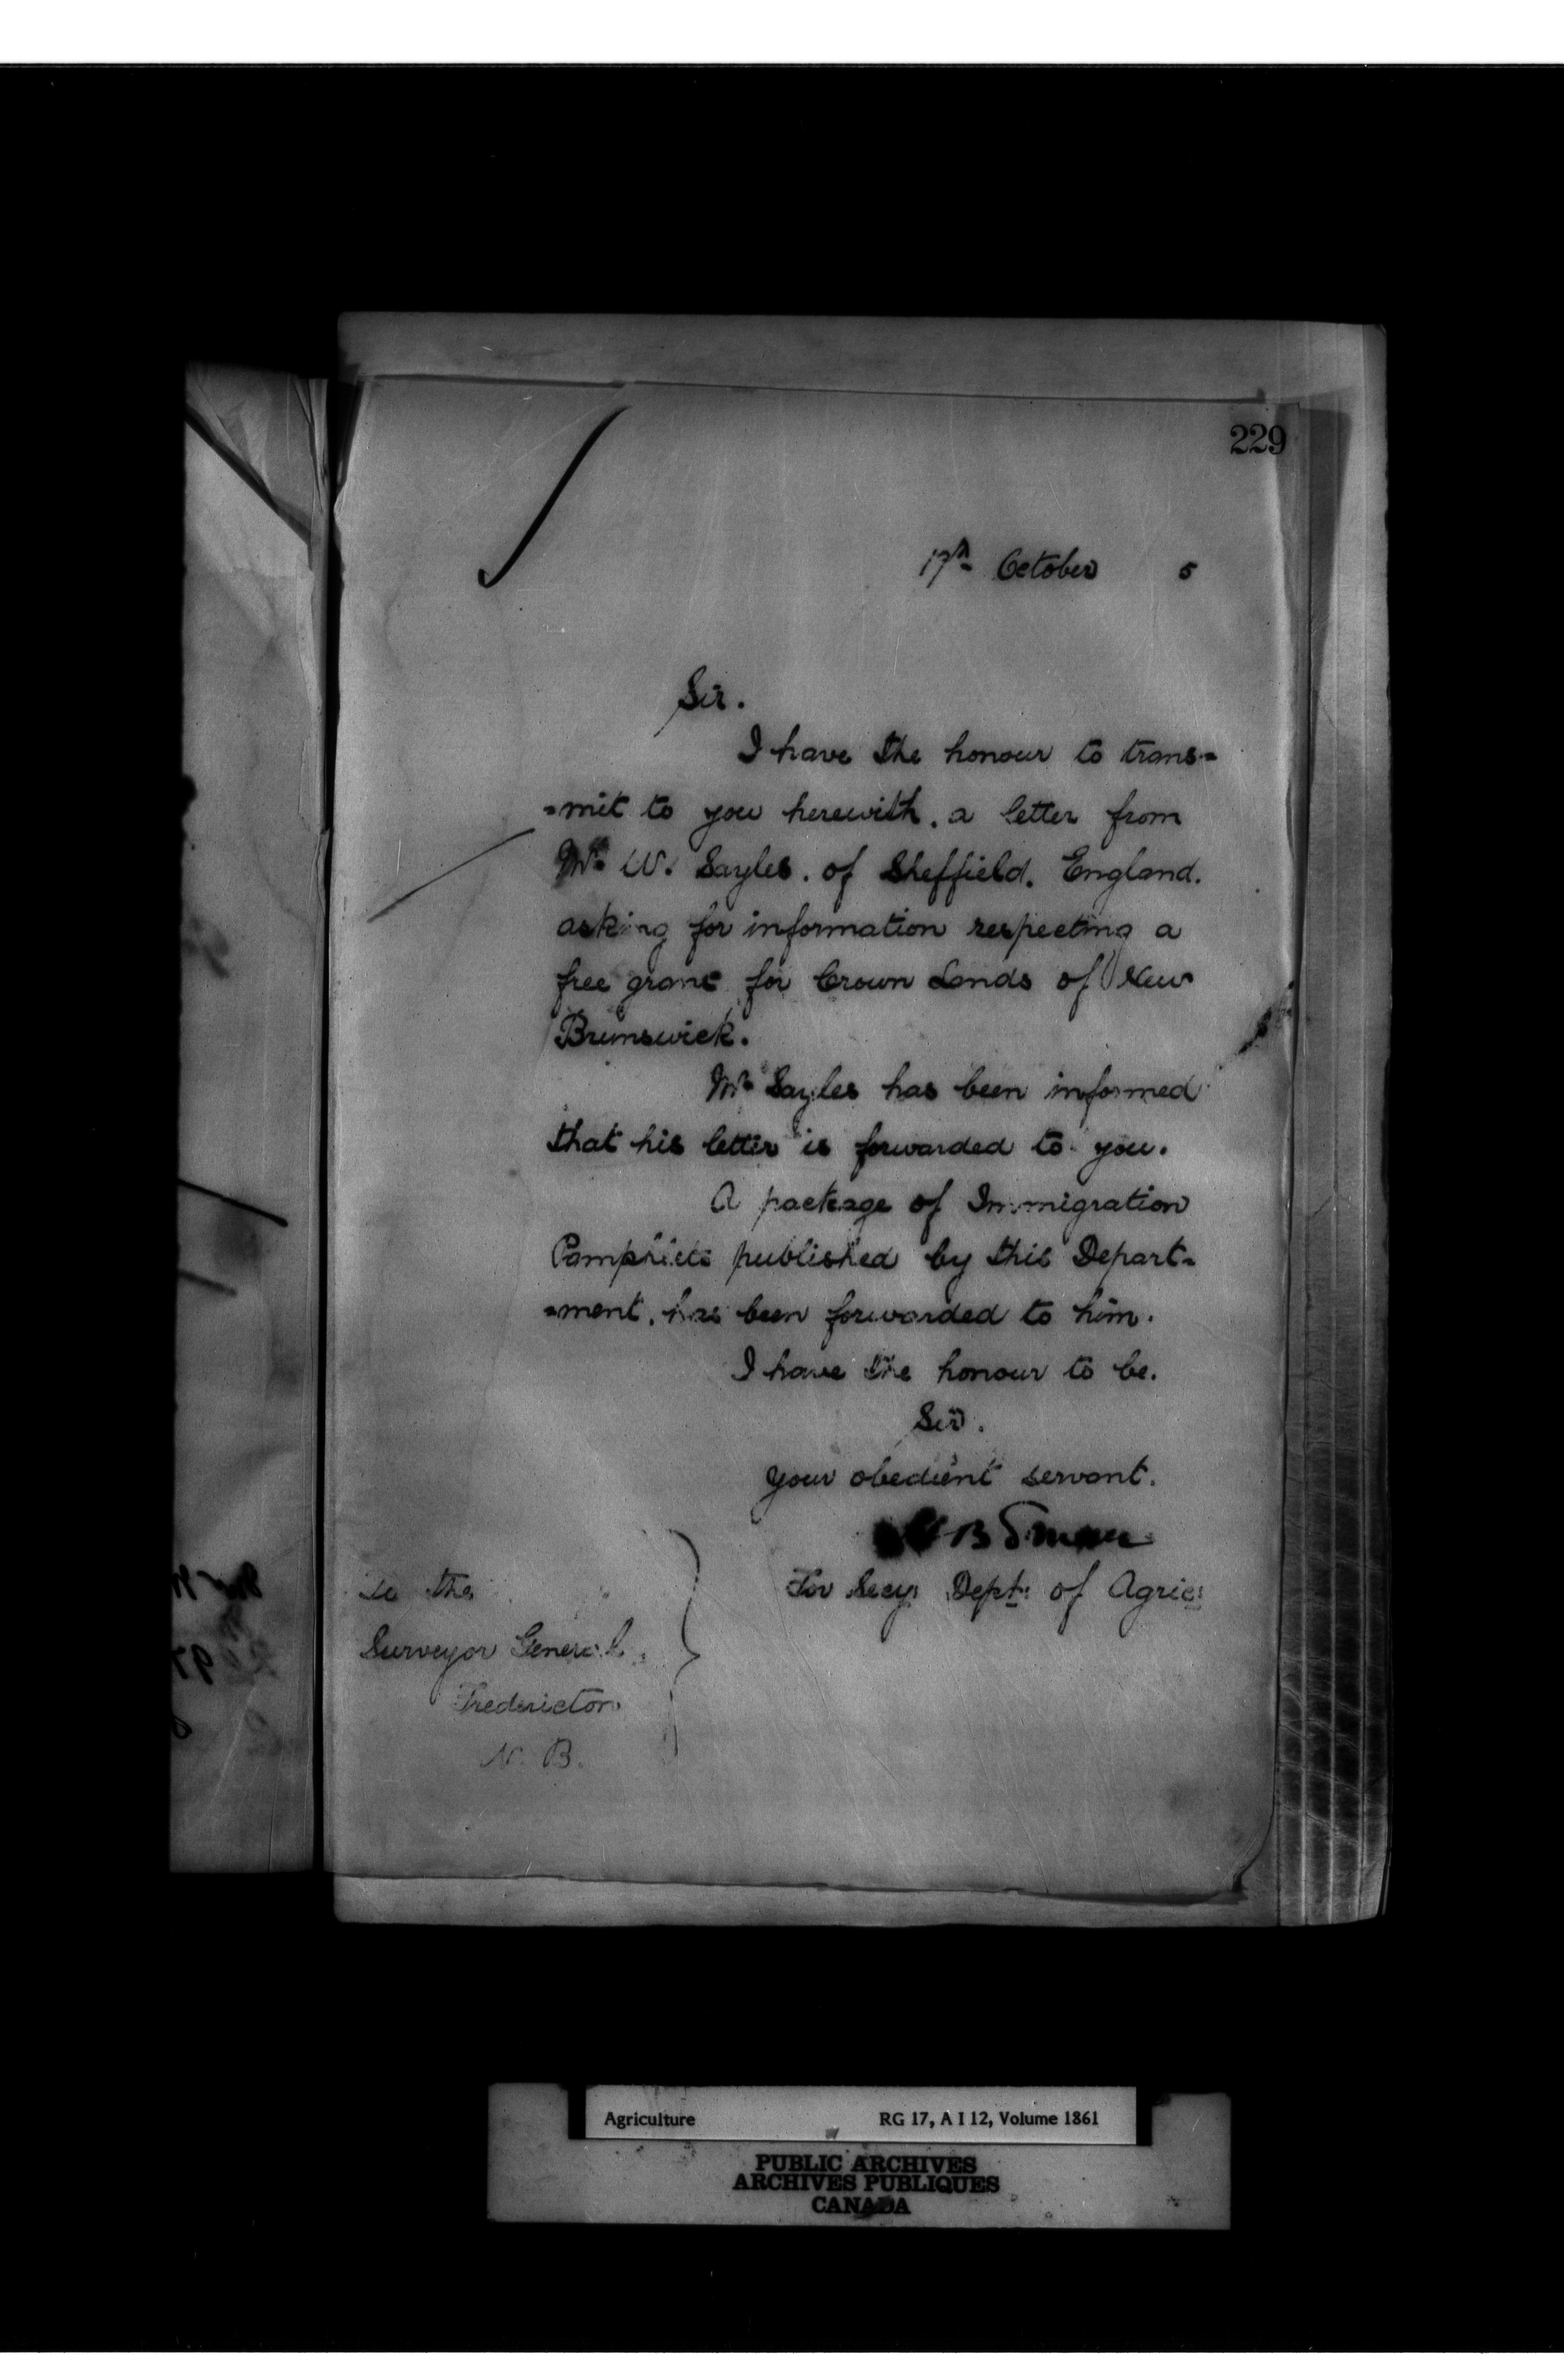 229
17th October 5
Sir.
I have the honour to trans=
=mit to you herewith. a letter from
Mr. W. Sayles. of Sheffield. England.
asking for information respecting a
free grant for Crown Lands of New
Brunswick.
Mr. Sayles has been informed
that his letter is forwarded to you.
A package of Immigration
Pamphlets published by this Depart=
=ment. has been forwarded to him.
I have the honour to be.
Sir.
Your obedient servant.
For Secy. Dept. of Agric:
To the
Surveyor General.
Fredericton
N. B.
Agriculture RG 17, A I 12, Volume 1861
PUBLIC ARCHIVES
ARCHIVES PUBLIQUES
CANADA